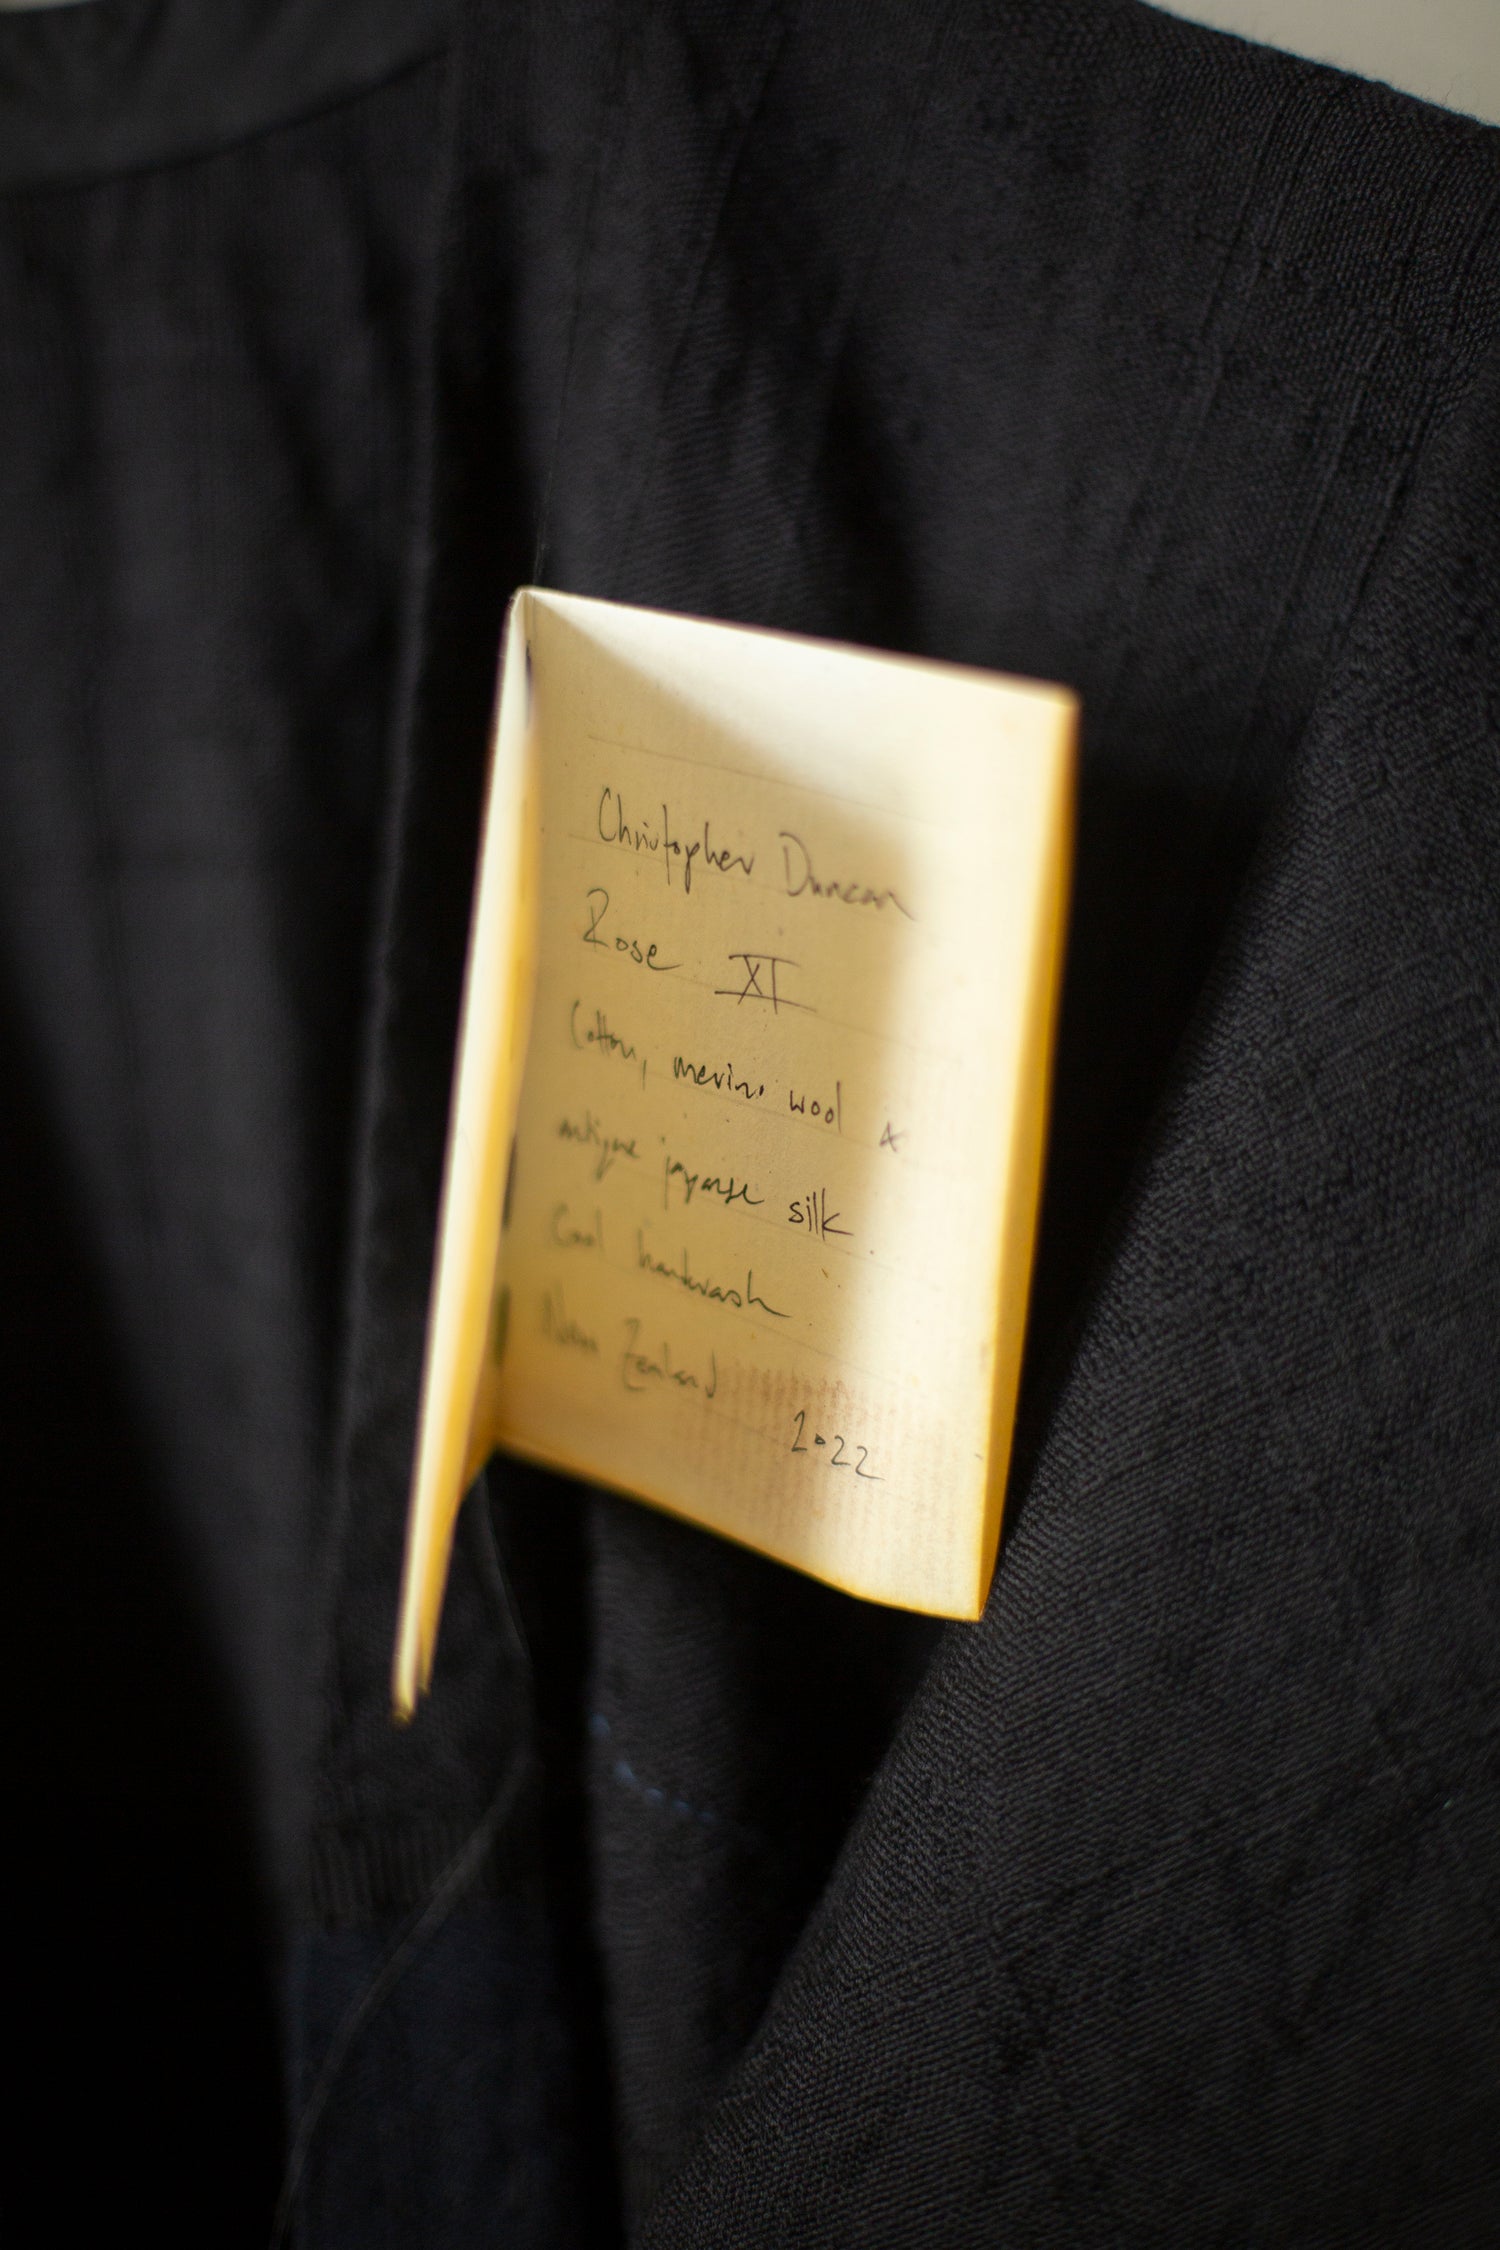 Christopher Duncan
Rose XI
Cotton, merino wool &
antique japanese silk.
Cool handwash.
New Zealand
2022